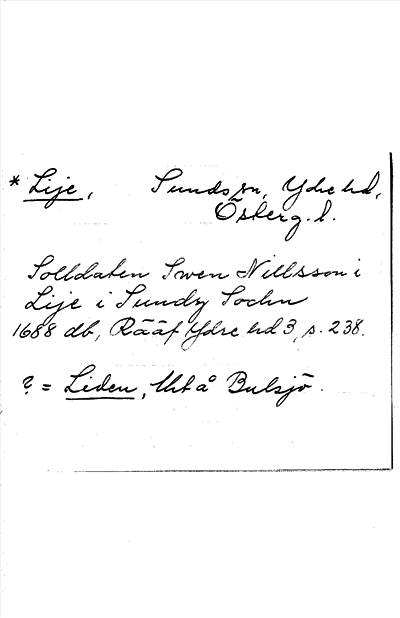 * Lije, Sunds sn, Ydre hd,
Österg. l.
Solldaten Swen Nillsson i
Lije i Sundz Sochn
1688 db, Rääf Ydre hd 3, s. 238.
? = Liden, Uht å Bulsjö.